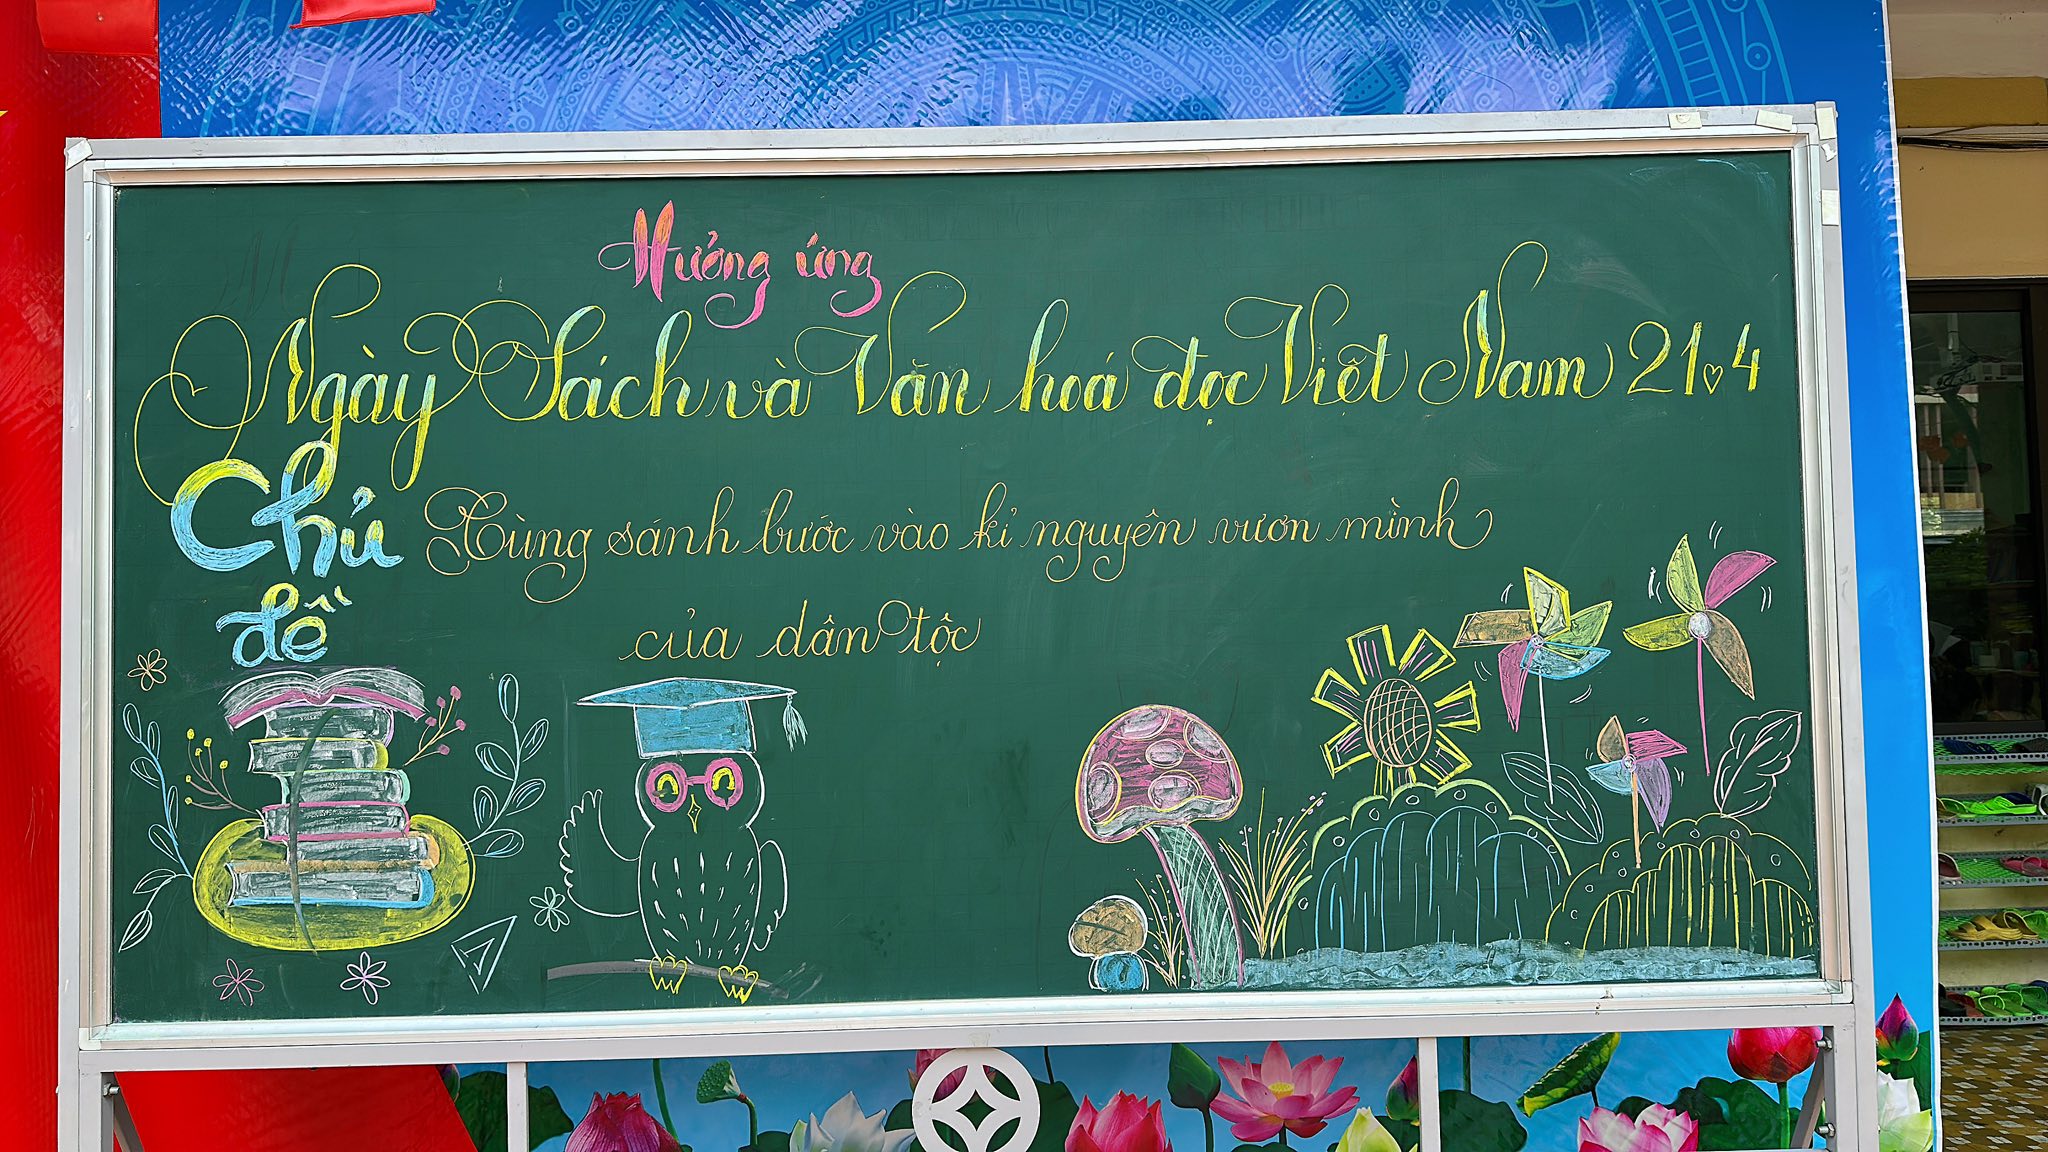 Hưởng ứng
Ngày Sách và Văn hoá đọc Việt Nam 21.4
Chủ đề Cùng sánh bước vào kỉ nguyên vươn mình
của dân tộc